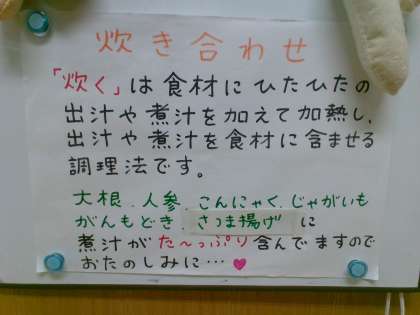 炊き合わせ
「炊く」は食材にひたひたの
出汁や煮汁を加えて加熱し、
出汁や煮汁を食材に含ませる
調理法です。
大根、人参、こんにゃく、じゃがいも
がんもどき、さつま揚げに
煮汁がた〜っぷり含んでますので
おたのしみに…♥